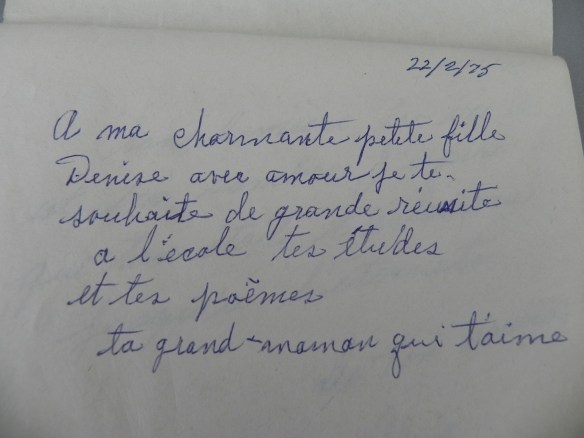 22/2/75
A ma charmante petite fille
Denise avec amour je te
souhaite de grande réusite
a l'école tes études
et tes poëmes
ta grand-maman qui t'aime